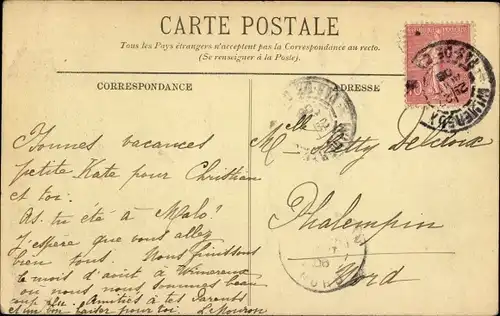 CARTE POSTALE
Tous les Pays étrangers n'acceptent pas la Correspondance au recto.
(Se renseigner à la Poste).
CORRESPONDANCE
ADRESSE
Bonnes vacances
petite Kate pour Christian
et toi.
As. tu été à Malo?
J'espère que vous allez
bien tous. Nous finissons
le mois d'août à Wimereux
où nous nous sommes beau
coup plu. Amitiés à tes Parents
et un bon baiser pour toi.
Melle Ketty Delcroix
Phalempin
Nord
WIMEREUX